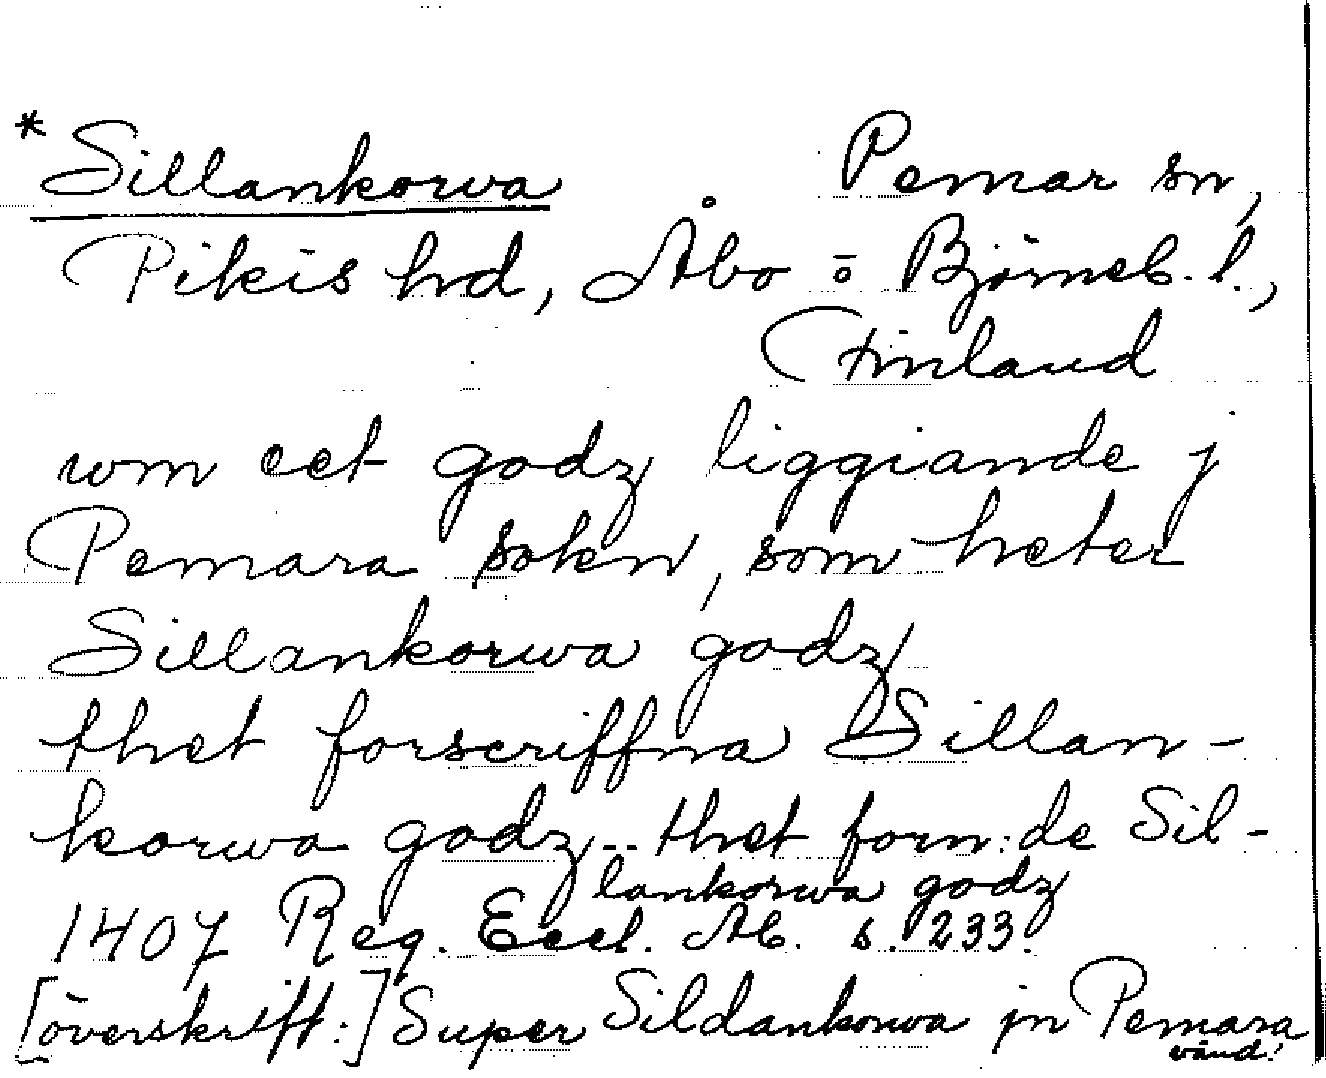 * Sillankorwa Pemar sn,
Pikis hd, Åbo o Björneb. l.,
Finland
wm eet godz liggiande j
Pemara sokn, som heter
Sillankorwa godz
thet forscriffna Sillan-
korwa godz -- thet forn:de Sil-
lankorwa godz
1407 Reg. Eccl. Ab. s. 233.
[överskrift:] Super Sildankorwa jn Pemara
vänd!